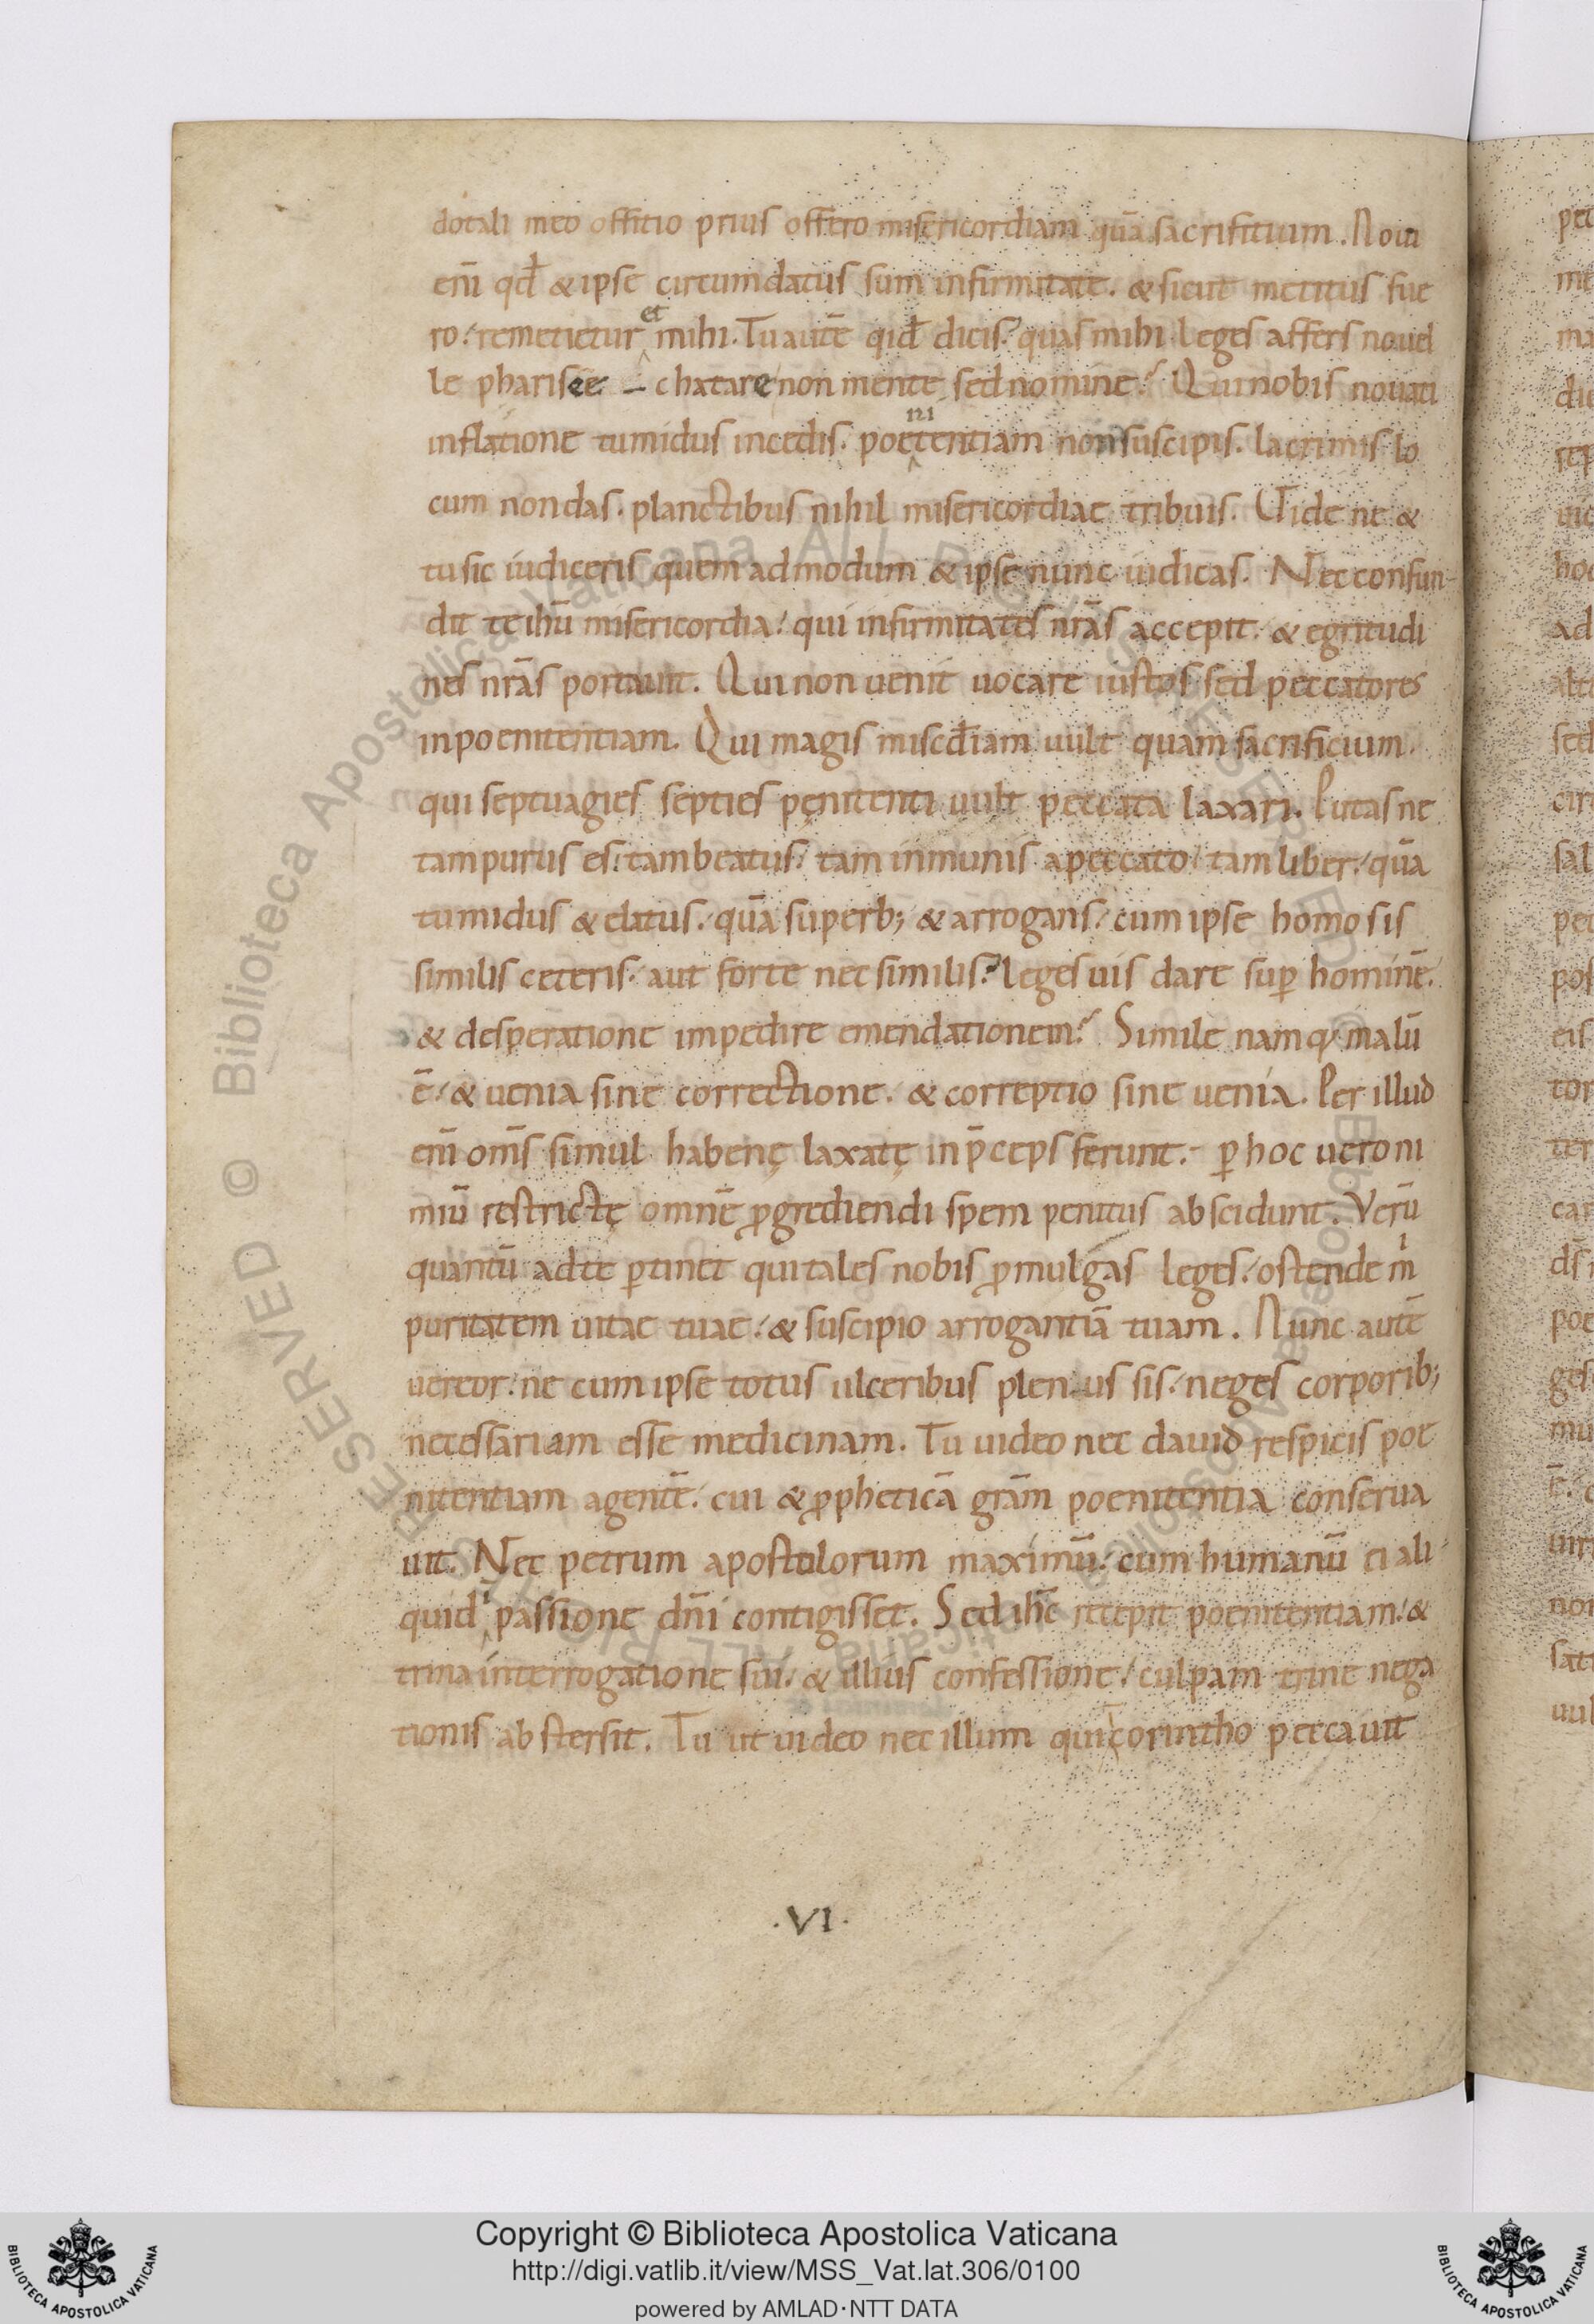 dotali meo offitio prius offero misericordiam quā sacrifitium. Noui
eni̅ qd̅ & ipse circumdatus sum infirmitate. & sicut metitus fue
ro. remetietur et mihi. Tu autē qid̅ dicis? quas mihi leges affers nouel
le pharisee chatare non mente sed nomine? Qui nobis nouati
inflatione tumidus incedis. poenitentiam non suscipis. lacrimis lo
cum non das. planctibus nihil misericordiae tribuis. Vide ne &
tu sic iudiceris quem ad modum & ipse nunc iudicas. Nec confun-
dit te ihū misericordia. qui infirmitates nrās accepit. & egritudi
nes nrās portauit. Qui non uenit uocare iustos sed peccatores
in poenitentiam. Qui magis miscd̅iam uult quam sacrificium.
qui septuagies septies pęnitenti uult peccata laxari. Putas ne
tam purus es. tam beatus. tam inmunis a peccato. tam liber. quā
tumidus & elatus. quā superb; & arrogans. cum ipse homo sis
similis ceteris. aut forte nec similis? leges uis dare sup̄ hominē.
& desperatione impedire emendationem? Simile namq; malū
ē. & uenia sine correctione. & correptio sine uenia. Per illud
eni̅ om̅s simul habenę laxatę in p̄ceps ferunt. p̱ hoc uero ni
miū restrictę omnē ꝓgrediendi spem penitus abscidunt. Verū
quantū ad te p̱tinet qui tales nobis ꝓmulgas leges. ostende mⁱ
puritatem uitae tuae. & suscipio arrogantiā tuam. Nunc autē
uereor. ne cum ipse totus ulceribus plenus sis. neges corporib;
necessariam esse medicinam. Tu uideo nec dauid respicis poe
nitentiam agentē. cui & ꝓpheticā grām poenitentia conserua
uit. Nec petrum apostolorum maximū. cum humanū ei ali
quid ī passione dn̄i contigisset. Sed ih̅c recepit poenitentiam. &
trina interrogatione sui. & illius confessione. culpam trine nega
tionis abstersit. Tu ut uideo nec illum qui ī corintho peccauit
.VI.
Copyright © Biblioteca Apostolica Vaticana
http://digi.vatlib.it/view/MSS_Vat.lat.306/0100
powered by AMLAD·NTT DATA